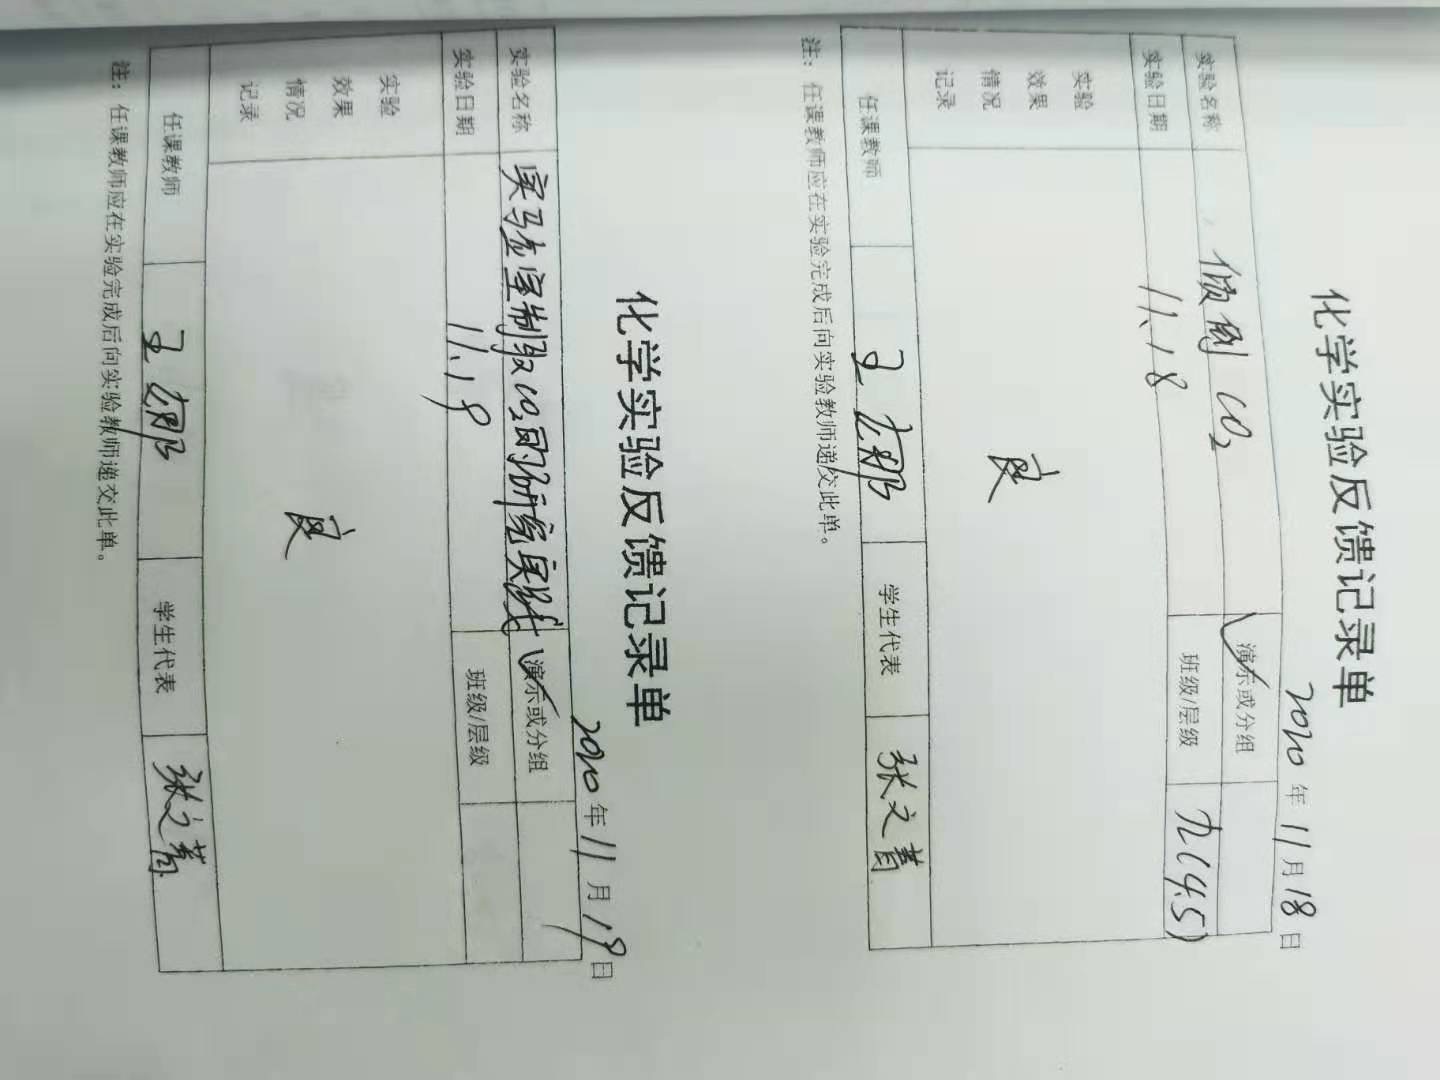 化学实验反馈记录单
2020年11月18日
实验名称 倾倒CO₂ 演示或分组
实验日期 11.18 班级/层级 九(4.5)
实验
效果
情况
记录
良
任课教师 王 学生代表 张文菁
注：任课教师应在实验完成后向实验教师递交此单。
化学实验反馈记录单
2020年11月19日
实验名称 实验室制取CO₂的研究实践 演示或分组
实验日期 11.19 班级/层级
实验
效果
情况
记录
良
任课教师 王 学生代表 张文菁
注：任课教师应在实验完成后向实验教师递交此单。